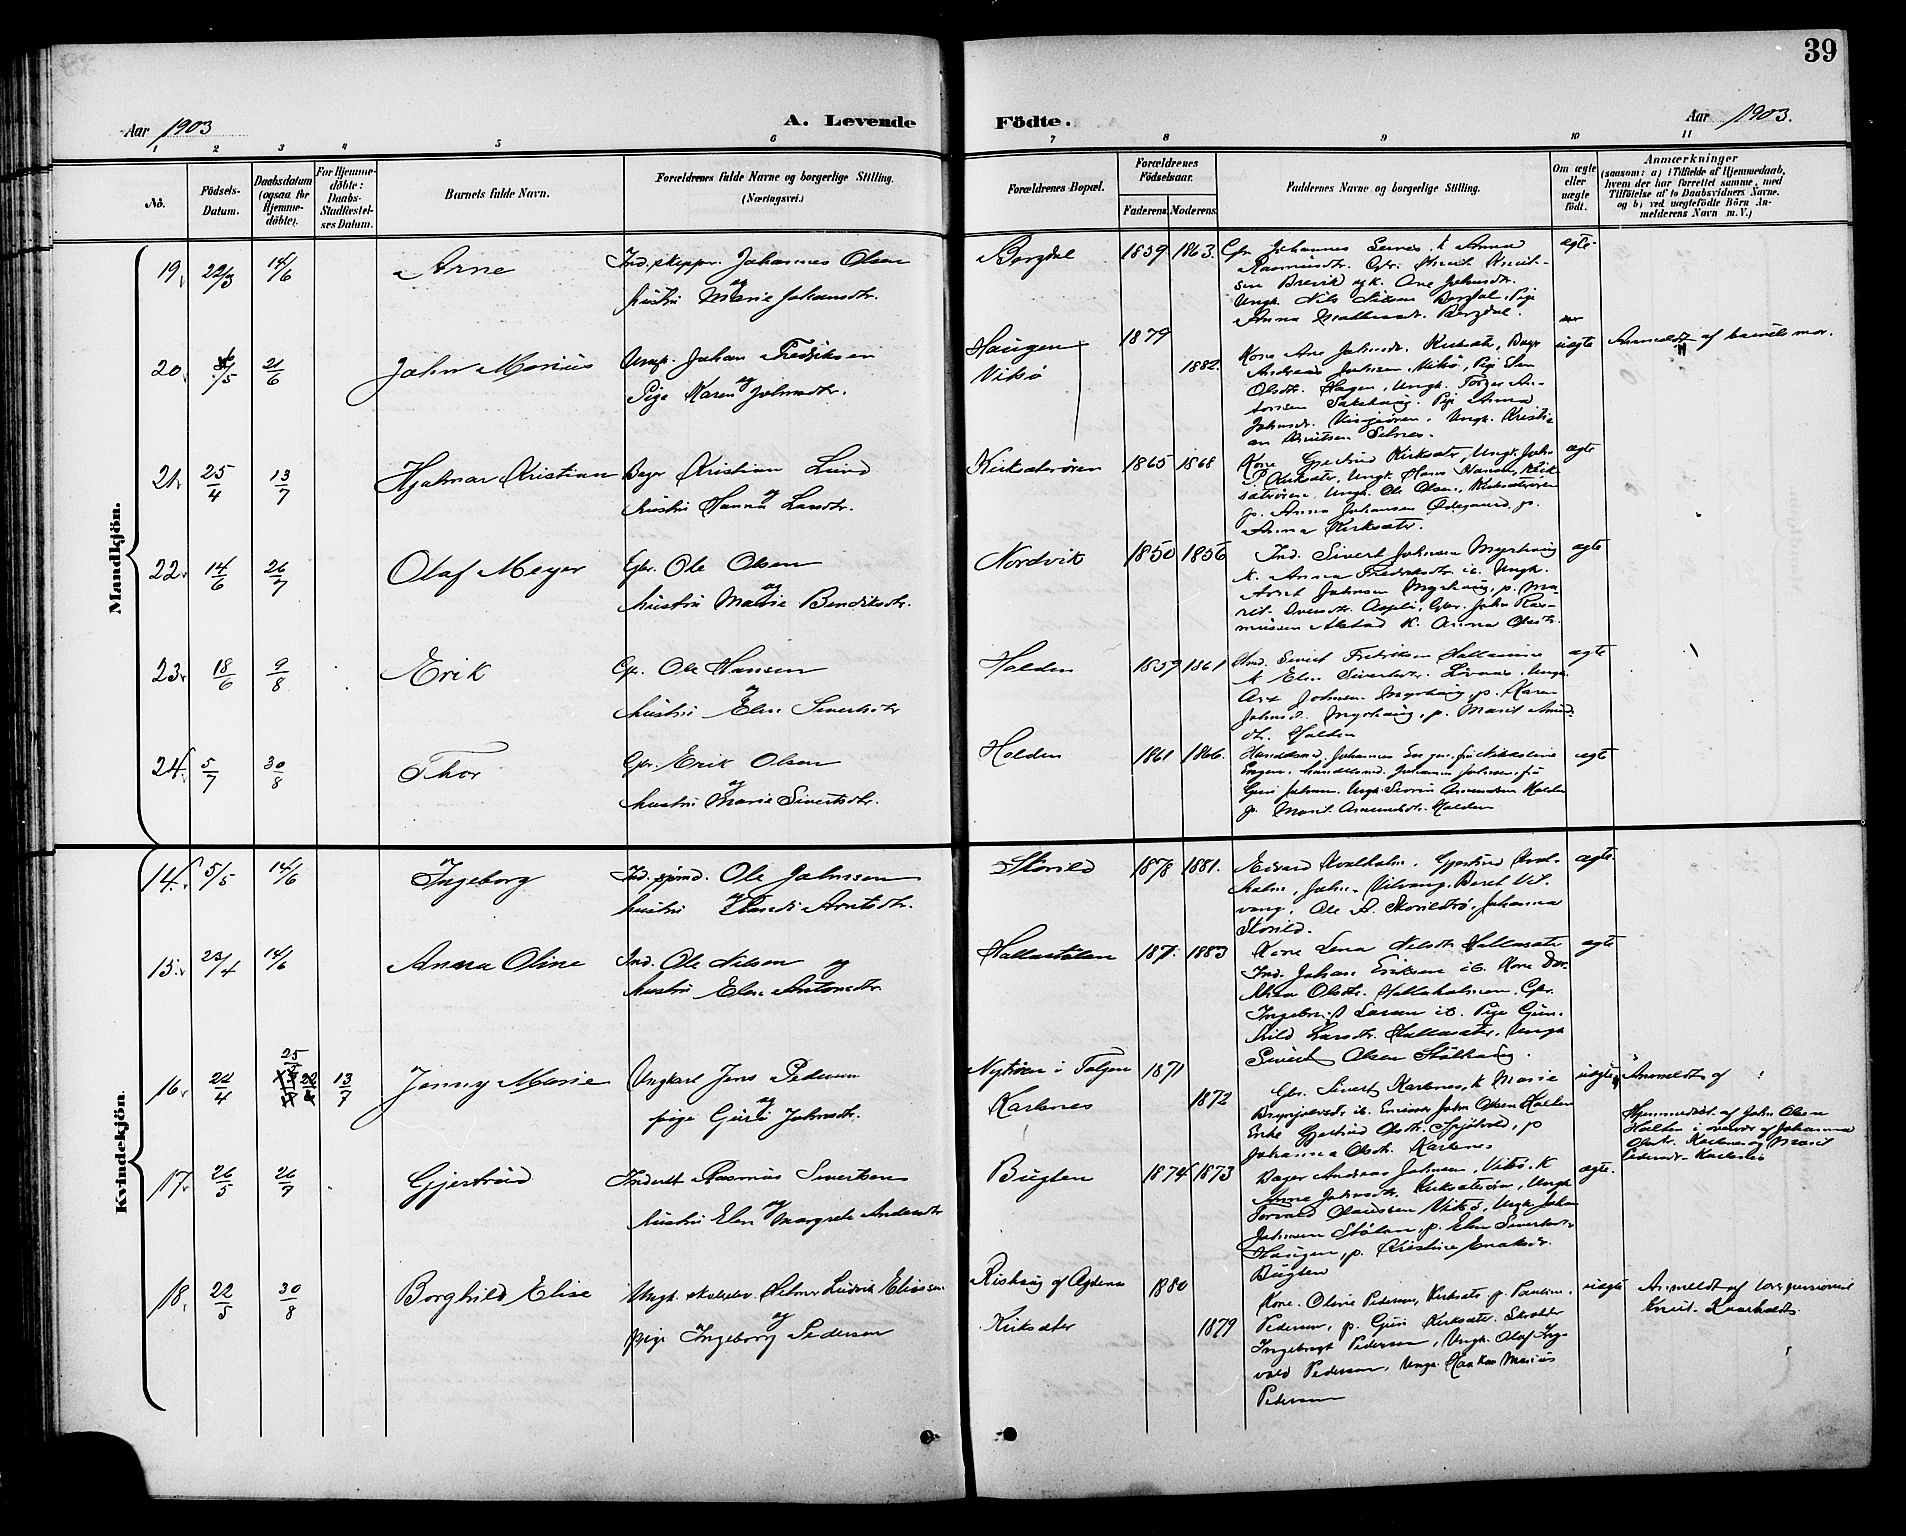 39
Aar 1903
A. Levende
Födte.
Aar 1903.
1 2 3 4 5 6 7 8 9 10 11
No.
Födsels-
Datum.
Daabsdatum
(ogsaa for
Hjemme-
döbte).
For Hjemme-
döbte:
Daabs-
Stadfæstel-
ses Datum.
Barnets fulde Navn.
Forældrenes fulde Navne og borgerlige Stilling.
(Næringsvei.)
Forældrenes Bopæl.
Forældrenes
Födselsaar.
Faderens. Moderens.
Faddernes Navne og borgerlige Stilling.
Om ægte
eller
uægte
födt.
Anmærkninger
(saasom: a) i Tilfælde af Hjemmedaab,
hvem der har forrettet samme, med
Tilföielse af to Daabsvidners Navne.
og b) ved uægtefödte Börn An-
melderens Navn m. V.)
Mandkjön.
19. 22/3 14/6 Arne
Ind. skipper Johannes Olsen
og
hustru Marie Johansdtr.
Bergdal 1859 1863.
Gbr. Johannes Sernes, k. Anna
Rasmusdtr. Gbr. Knut Knut-
sen Brevik og k. Ane Johnsdtr.
Ungk. Nils Nilsen Bergdal, Pige
Bergdal.
ægte.
20. /5 21/6 John Marius
Ungk. Johan Fredriksen
og
Pige Karen Johnsdtr.
Haugen 1879
Vitsö 1882.
Kone Ane Johnsdr. Kirksæter, Bager
Andreas Johnsen, Vitsö, Pige Elen
Olsdtr. Hagen, Ungk. Torger An-
tonsen Pige Anna
Johnsdr. Ungk. Kristi-
an Knutsen Selnes.
uægte
Anmeldt af barnets mor.
21. 25/4 13/7 Hjalmar Kristian
Bager Kristian Lund
og
hustru Hanna Larsdtr.
Kirksæterören 1865 1868
Kone Gjertrud Kirksæter, Ungk. John
P. Kirksæter, Ungk. Hans Hansen, Kirk-
sæterören, Ungk. Ole Olsen, Kirksæterören
p. Anna Johansen Ödegaard, p.
Anna Kirksæter.
ægte
22. 14/6 26/7 Olaf Meyer
Gbr. Ole Olsen
og
hustru Marie Bendiksdtr.
Nordvik 1850 1856
Ind. Sivert Johnsen Myrhaug
k. Anna Fredriksdtr. ib. Ungk.
Arnt Johnsen Myrhaug, p. Ma-
rit Gbr. John Ras-
mussen k. Anna Olsdtr.
ægte
23. 18/6 9/8 Erik
Gbr. Ole Hansen
og
hustru Elen Sivertsdtr
Holden 1859 1861
Ind. Sivert Fredriksen
k. Elen Sivertsdtr. Ungk.
Johnsen Myrhaug, p. Karen
Johnsd. Myrhaug, p. Marit Amund-
dtr. Holden
ægte
24. 5/7 30/8 Thor
Gbr. Erik Olsen
og
hustru Marie Sivertsdtr.
Holden 1861 1866.
Handelsmd. Johannes Engen, fru Nikoline
Engen, handelsmd. Johannes Johnsen, fru
Guri Johnsen, Ungk. Sivert Amundsen Holden
p. Marit Amundsdtr. Holden
ægte
Kvindekjön.
14. 5/5 14/6 Ingeborg
Ind. Ole Johnsen
hustru Arntsdtr.
Storild 1878 1881.
Edvard Kvalholm, Gjertrud Kval-
holm, John Vitvang, Beret Vit-
vang, Ole A. Storildrö, Johanna
Storild.
ægte.
15. 23/4 14/6 Anna Oline
Ind. Ole Nilsen og
hustru Elen Antonsdtr
Hallastölen 1871. 1883
Kone Lena Nilsdtr Hallasæter
Ind. Johan Eriksen ib. Kone Dor-
thea Olsdtr. Hallaholmen, Gbr.
Ingebrigt Larsen ib. Pige Gun-
hild Larsdtr. Hallasæter, Ungk
Sivert Olsen Stölhaug.
ægte
16. 22/4 25/ 13/7 Jenny Marie
Ungkarl Jens Pedersen
og
pige Guri Johnsdtr.
Nytröen i Tolgen 1871
Karlsnes 1872
Gbr. Sivert Karlsnes, k. Marie
Brynjolvsdtr ib. Enkem. John Olsen Holten
Enke Gjertrud Olsdtr. p
Johanna Olsdtr. Karlsnes
uægte
Anmeldt af
Hjemmedöbt af John Olsen
Holten i nærvær af Johanna
Olsdt. Karlsnes og Marit
Pedersdt. Karlsnes
17. 26/5 26/7 Gjertrud
Inderst Rasmus Sivertsen
og
hustru Elen Margrete Andersdtr
Bugten 1874 1873
Bager Andreas Johnsen, Vitsö, k
Anne Johnsdtr. Kirksæterören, Ungk
Torvald Olaussen Vitsö, Ungk. Johan
Johnsen Stölan, p. Elen Sivertsdtr
Haugen, p. Kristine Eriksdr.
Bugten
ægte.
18. 22/5 30/8 Borghild Elise
Ungk. Helmer Ludvik Eliassen
og
pige Ingeborg Pedersen
Rishaug af Agdenes 1880
Kirksæter 1879
Kone Oline Pedersen, Kirksæter p. Pauline
Pedersen, p. Guri Kirksæter. Skolelr
Ingebrigt Pedersen, Ungk. Olaf Ing-
vald Pedersen, Ungk. Haakon Marius
Pedersen
uægte
Anmeldt af
Knut